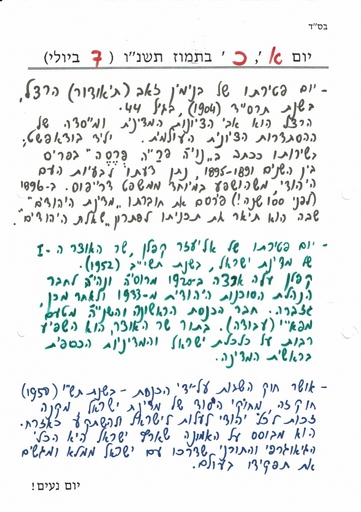 בס"ד
יום א', כ' בתמוז תשנ"ו (7 ביולי)
- יום פטירתו של בנימין זאב (תיאודור) הרצל,
בשנת תרס"ד (1904), בגיל 44.
הרצל הוא אבי הציונות המדינית ומייסדה של
ההסתדרות הציונית העולמית. יליד בודאפשט,
בשירותו ככתב ב"נויה פרייה פרסה" בפריס
בין השנים 1891-1895, נתן דעתו לבעיות העם
היהודי, משהושפע במיוחד ממשפט דרייפוס. ב-1896
(לפני 100 שנה!) פרסם את חוברתו "מדינת היהודים"
שבה הוא תיאר את תכניתו לפתרון "שאלת היהודים".
- יום פטירתו של אליעזר קפלן, שר האוצר ה-I
של מדינת ישראל, בשנת תשי"ב (1952).
קפלן עלה ארצה ב-1920 מרוסיה ונהיה לחבר
הנהלת הסוכנות היהודית מ-1933 ולאחר מכן
גזברה. חבר הכנסת הראשונה והשנייה מטעם
מפא"י (עבודה). בתור שר האוצר הוא השפיע
רבות על כלכלת ישראל והמדיניות הכספית
בראשית המדינה.
- אושר חוק השבות על-ידי הכנסת - בשנת תש"י (1950)
חוק זה, מחוקי היסוד של מדינת ישראל מקנה
זכות לכל יהודי לעלות לישראל ולהשתקע כאזרח.
הוא מבוסס על האמונה שארץ ישראל היא הכלי
הגיאוגרפי והתורני, שדרכו עם ישראל ממלא ומגשים
את תפקידו בעולם.
יום נעים!